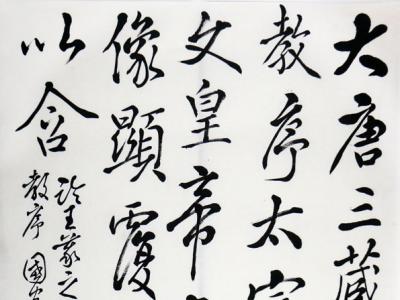 大唐三藏
教序太宗
文皇帝
像顯覆
以含
臨王羲之
教序國